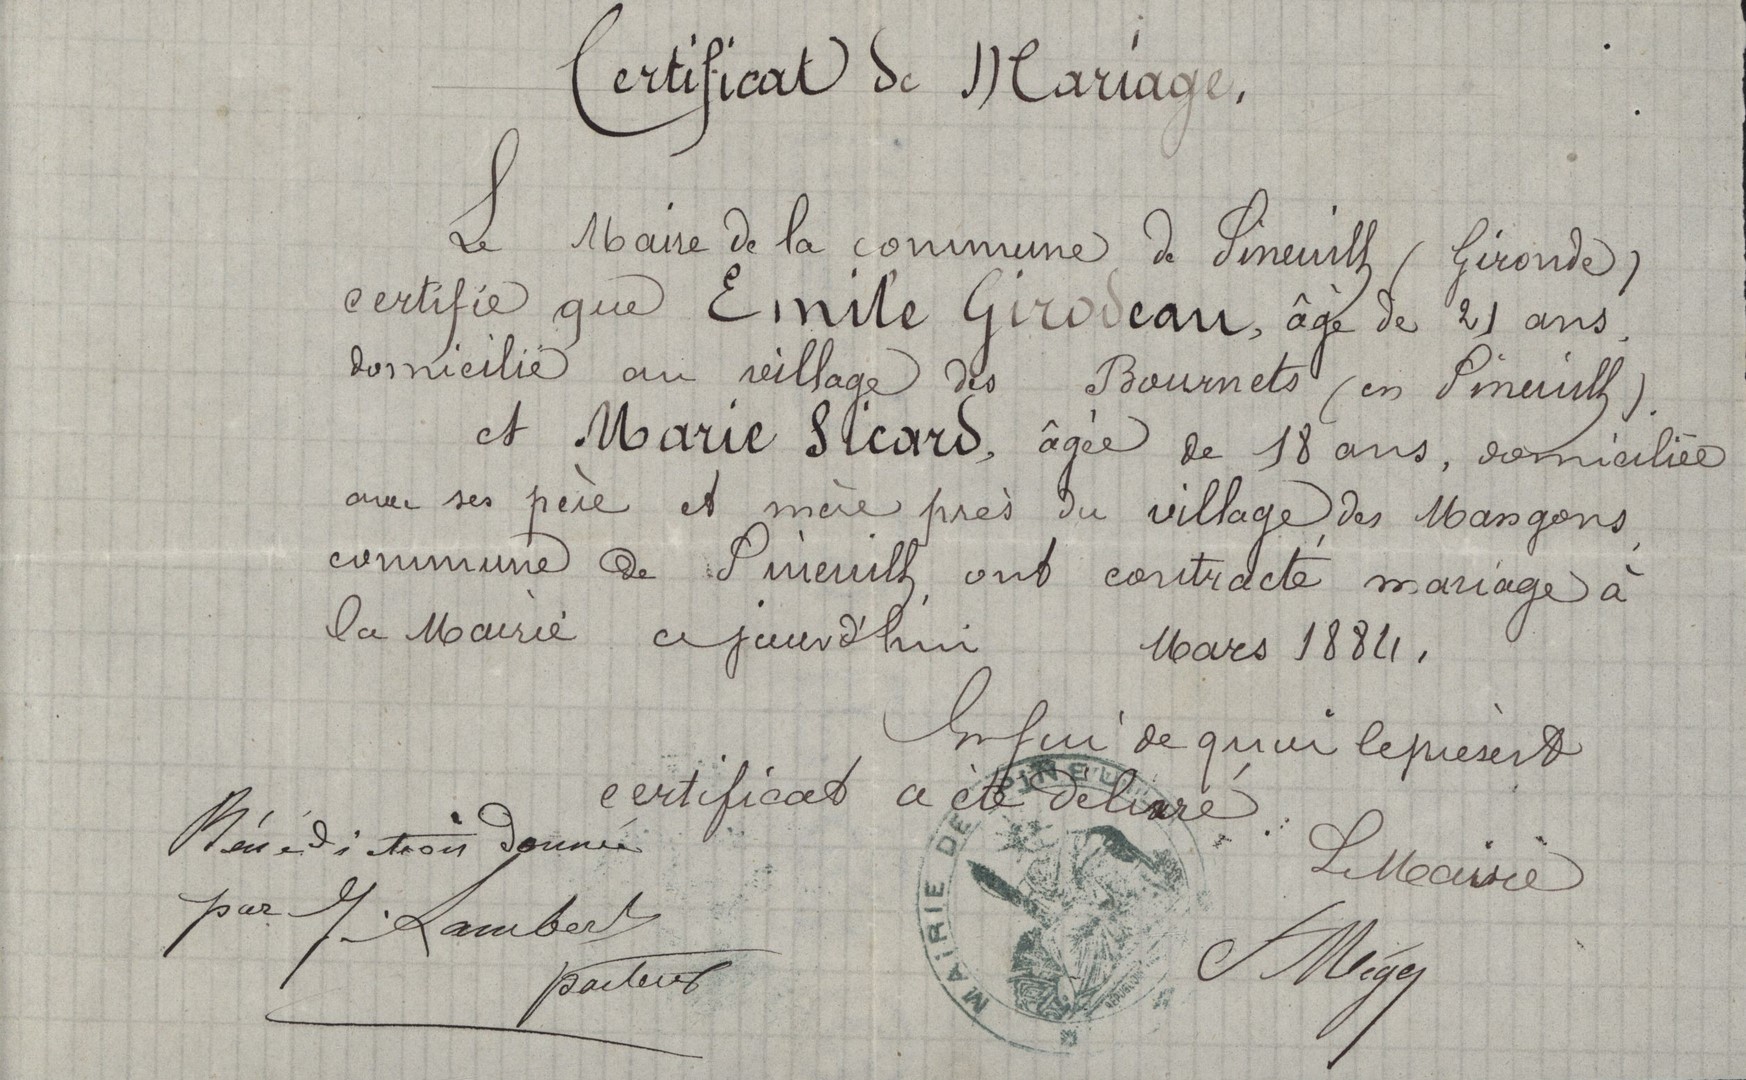 Certificat de Mariage.
Le Maire de la commune de Pineuilh (Gironde)
certifie que Emile Girodeau, âgé de 21 ans,
domicilié au village des Bournets (en Pineuilh).
et Marie Sicard, âgée de 18 ans, domiciliée
avec ses père et mère près du village des Mangons,
commune de Pineuilh, ont contracté mariage à
la Mairie ce jourd'hui Mars 1884.
En foi de quoi le présent
certificat a été délivré.
Le Maire
Bénédiction donnée
par J. Lambert
pasteur
MAIRIE DE PINEUILH